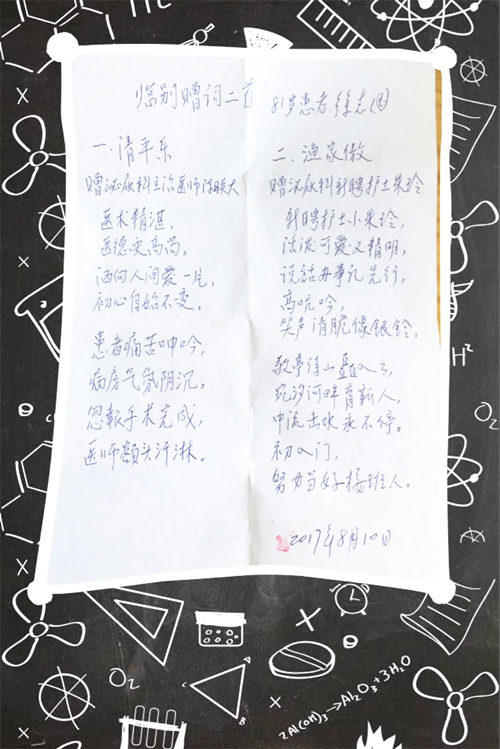 临别赠词二首 81岁患者徐志
一.清平乐
赠泌尿科主治医师陈
医术精湛,
医德更高尚。
洒向人间爱一片,
初心自始不变。
患者痛苦呻吟,
病房气氛阴沉。
忽报手术完成,
医师额头汗淋。
二.渔家傲
赠泌尿科新聘护士朱玲
新聘护士小朱玲,
活泼可爱又精明,
说話办事礼先行。
高吭吟,
笑声清脆像银铃。
敬亭诗山矗入云,
沙河畔育新人,
中流击水永不停。
初入门,
努力当好接班人。
2017年8月10日
H₂
O₂
O₂
A
B
2Al(OH)₃→Al₂O₃+3H₂O